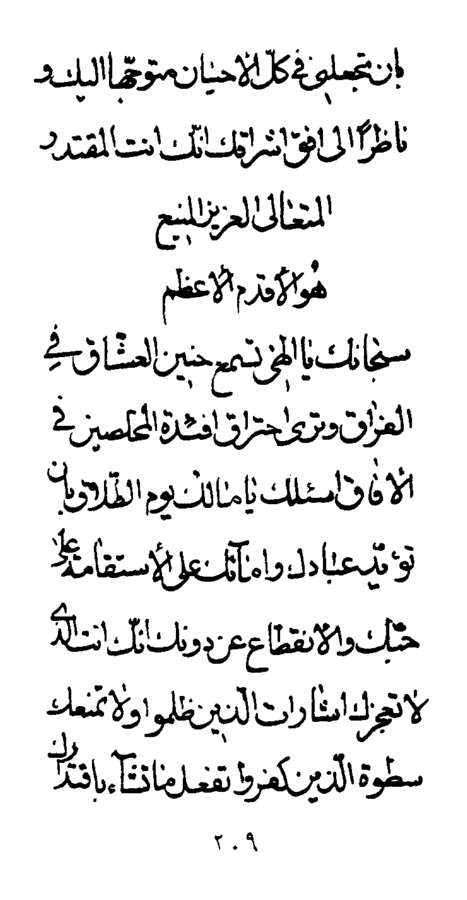 بان تجعلنی فی کلّ الأحیان متوجّهاً الیک و
ناظراً الی افق اشراقک انّک انت المقتدر
المتعالی العزیز المنیع
هُو الأقدم الأعظم
سبحانک یا الهی تسمع حنین العشّاق فی
الفراق و تری احتراق افئدة المخلصین فی
الآفاق اسئلک یا مالک یوم الطّلاق بان
تؤیّد عبادک و امآئک علی الأستقامة علی
حبّک و الأنقطاع عن دونک انّک انت الّذی
لا تعجزک اشارات الّذین ظلموا و لا تمنعک
سطوة الّذین کفروا تفعل ما تشآء باقتدارک
۲۰۹